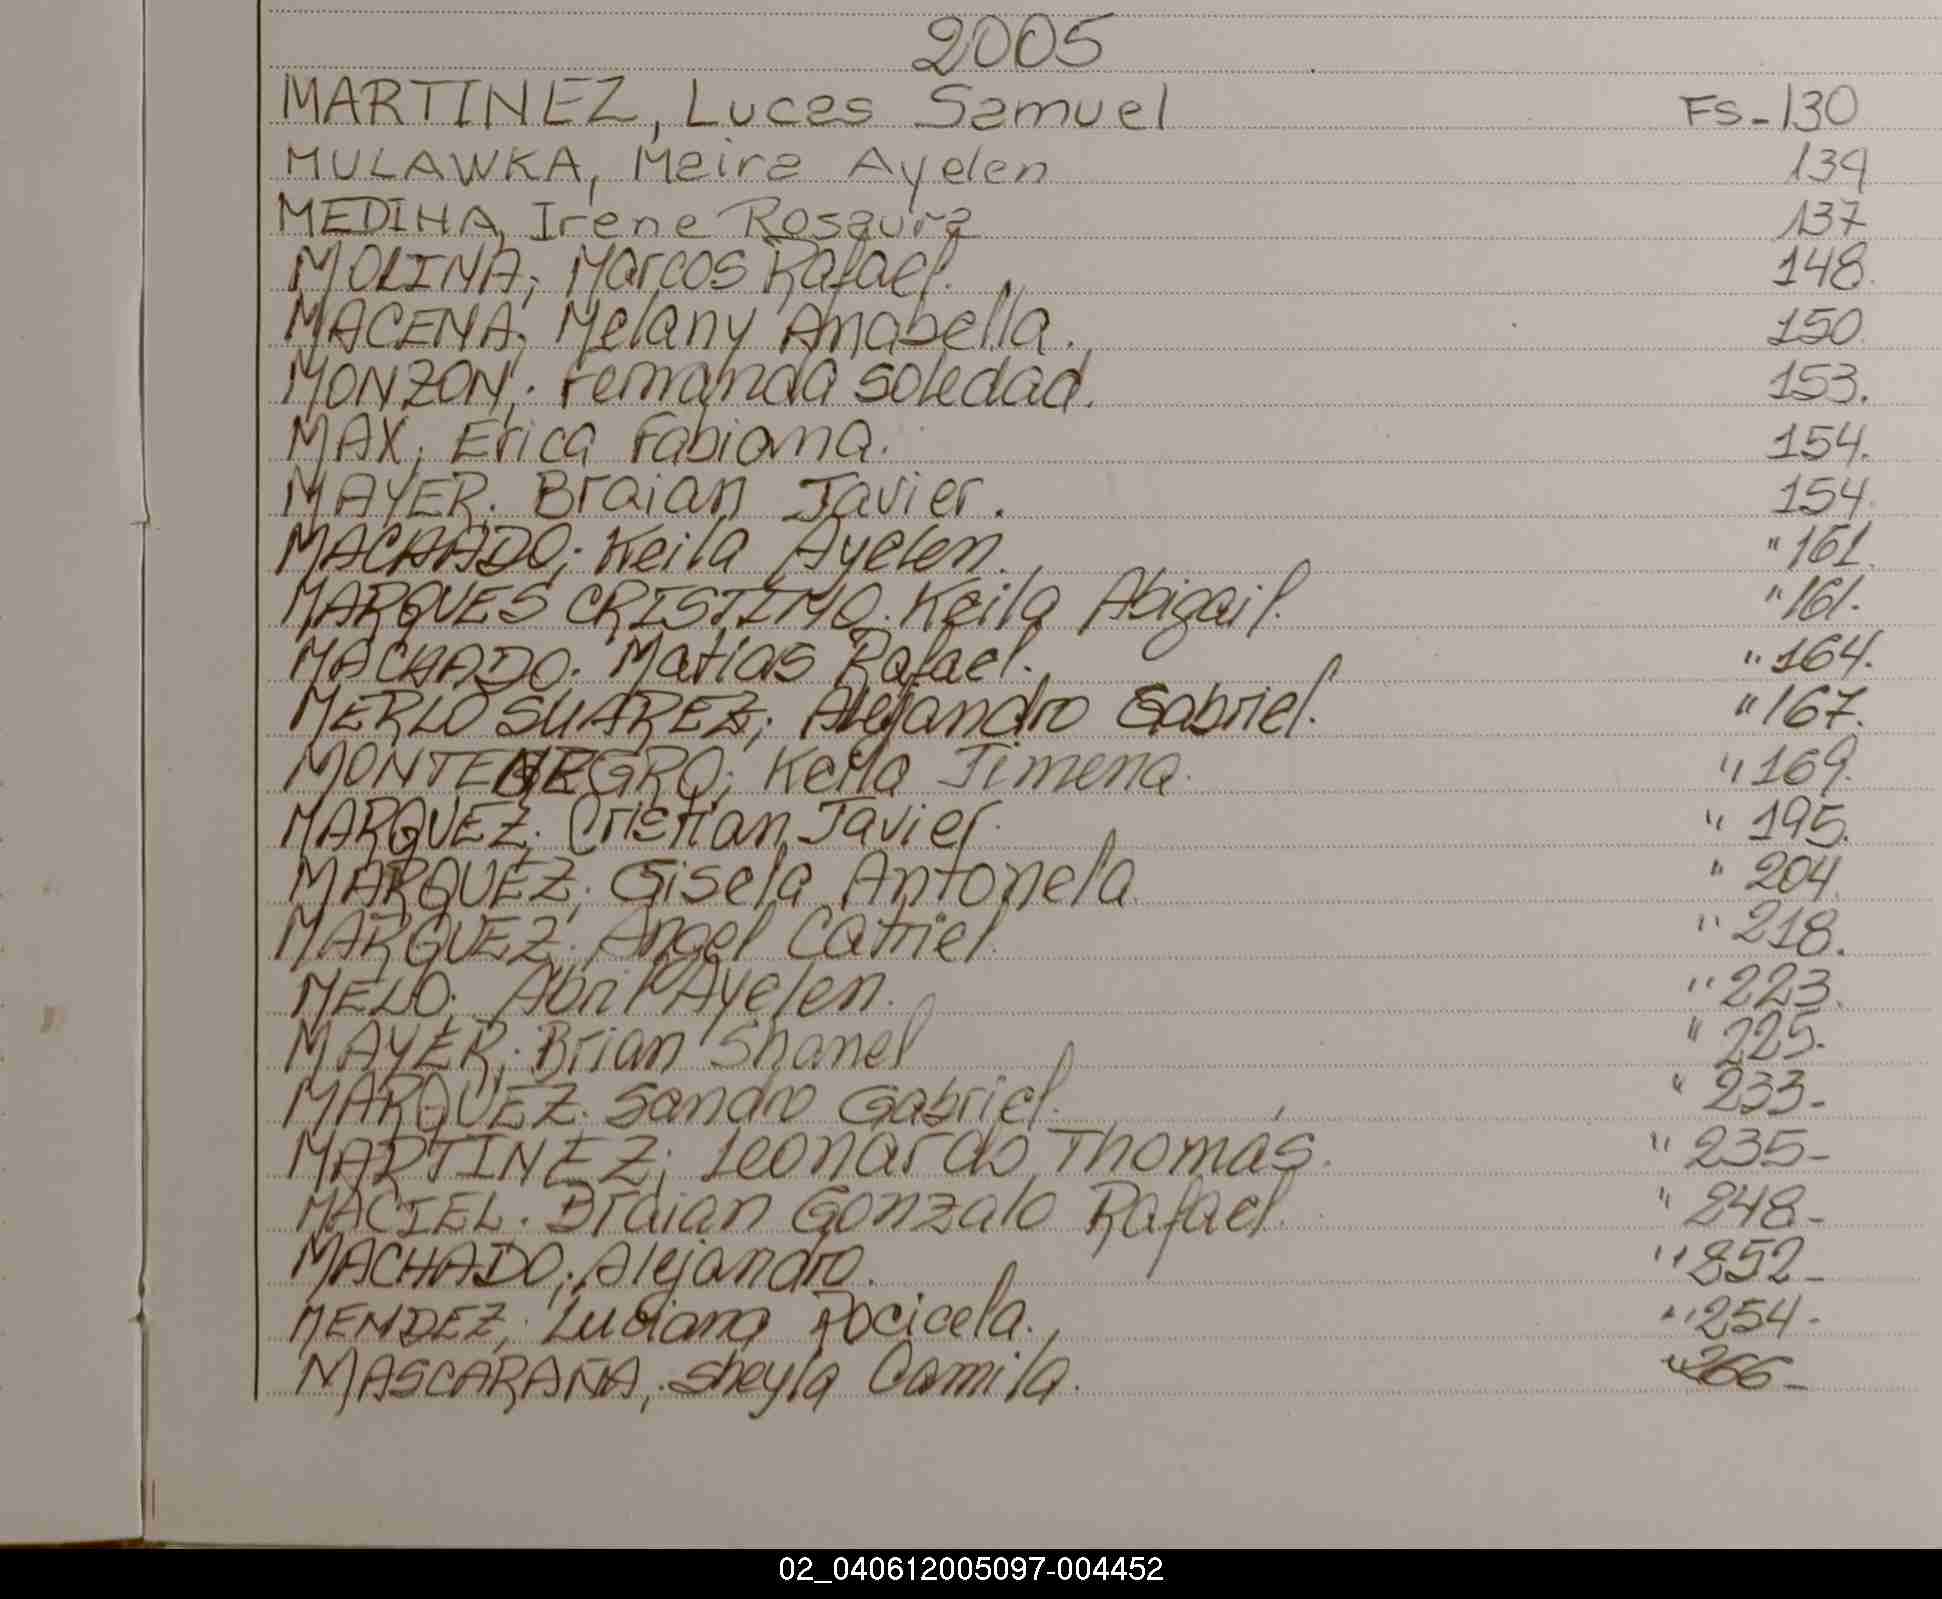 2005
MARTINEZ, Lucas Samuel FS-130
MULAWKA, Maira Ayelen 134
MEDINA, Irene Rosaura 137
MOLINA; Marcos Rafael. 148.
MACENA; Melany Anabella. 150.
MONZON; Fernanda Soledad. 153.
MAX; Erica Fabiana. 154.
MAYER. Braian Javier. 154.
MACHADO; Keila Ayelen. " 161.
MARQUES CRISTINO. Keila Abigail. " 161.
MACHADO. Matias Rafael. " 164.
MERLO SUAREZ; Alejandro Gabriel. " 167.
MONTENEGRO; Keila Jimena. " 169.
MARQUEZ; Cristian Javier. " 195.
MARQUEZ; Gisela Antonela. " 204.
MARQUEZ. Angel Catriel. " 218.
MELO; Abril Ayelen. " 223.
MAYER; Brian Shanel " 225-
MARQUEZ. Sandro Gabriel. " 233-
MARTINEZ; Leonardo Thomas. " 235-
MACIEL. Braian Gonzalo Rafael. " 248-
MACHADO; Alejandro. " 252-
MENDEZ; Luciana Rocicela. " 254-
MASCARAÑA; Sheyla Camila. " 266-
02_040612005097-004452